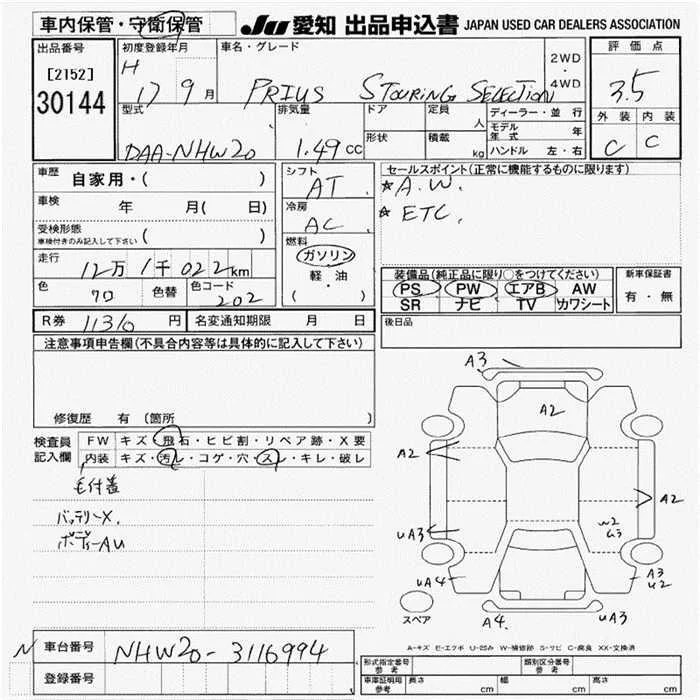 車内保管・守衛保管
JU 愛知 出品申込書 JAPAN USED CAR DEALERS ASSOCIATION
出品番号
[2152]
30144
初度登録年月
H 17 9 月
車名・グレード
PRIUS STOURING SELECTION
2WD
・
4WD
評価点
3.5
外装 内装
C C
型式
DAA-NHW20
排気量
1.49 CC
ドア
定員
人
形状
積載
kg
ディーラー・並行
モデル年式 年
ハンドル 左・右
車歴 自家用・( )
車検 年 月( 日)
受検形態
車検付きのみ記入して下さい ( )
走行 12万 1千 022 km
色 クロ 色替 色コード 202
シフト
AT
冷房
AC
燃料
ガソリン
軽・油
( )
セールスポイント(正常に機能するものに限ります)
☆ A.W.
☆ ETC.
装備品(純正品に限り○をつけてください)
PS PW エアB AW
SR ナビ TV カワシート
新車保証書
有・無
R券 11310 円 名変通知期限 月 日
後日品
注意事項申告欄(不具合内容等は具体的に記入して下さい)
修復歴 有 〔箇所
検査員
記入欄
FW キズ・飛石・ヒビ割・リペア跡・X要
内装 キズ・汚レ・コゲ・穴・スレ・キレ・破レ
毛付着
バッテリーX.
ボディーAU
A3
A2
A2
A2
UA3
W2
ムラ
UA4
A3
U2
スペア
A4
UA3
A-キズ E-エクボ U-凹み W-補修跡 S-サビ C-腐食 XX-交換済
N 車台番号 NHW20-3116994
登録番号
形式指定番号
参考
類別区分番号
参考
車庫証明用
参考
長さ cm 幅 cm 高さ cm